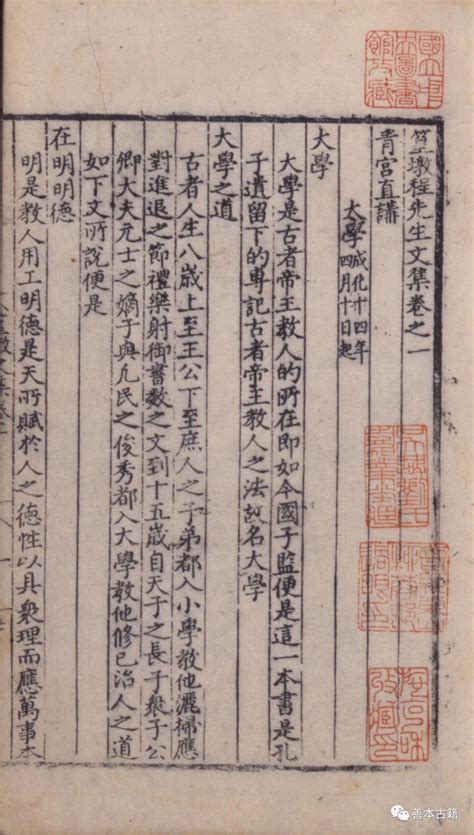 國立中
央圖書
館收藏
篁墩程先生文集卷之一
青宮直講
大學 成化廿四年
四月十日起
大學
大學是古者帝王教人的所在即如今國子監便是這一本書是孔
子遺留下的專記古者帝王教人之法故名大學
大學之道
古者人生八歲上至王公下至庶人之子弟都入小學教他灑掃應
對進退之節禮樂射御書數之文到十五歲自天子之長子衆子公
卿大夫元士之嫡子與凡民之俊秀都入大學教他修已治人之道
如下文所說便是
在明明德
明是教人用工明德是天所賦於人之德性以具衆理而應萬事本
善本古籍